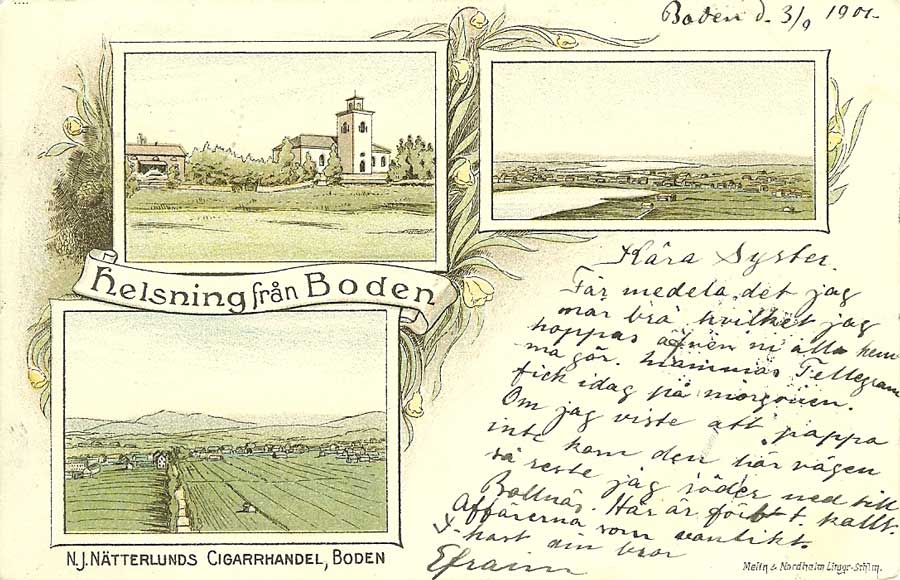 Boden d. 3/9 1901.
Helsning från Boden
Kära Syster.
Får medela det jag
mår bra hvilket jag
hoppas äfven ni alla hem
ma gör. Mammas Tellegram
fick idag på morgonen.
Om jag viste att pappa
inte kom den här vägen
så reste jag söder ned till
Bollnäs. Här är förbt. kallt.
Affärerna som vanligt.
hast din bror
Efraim
N.J. Nätterlunds Cigarrhandel, Boden
Melin & Nordheim Litogr. Sthlm.